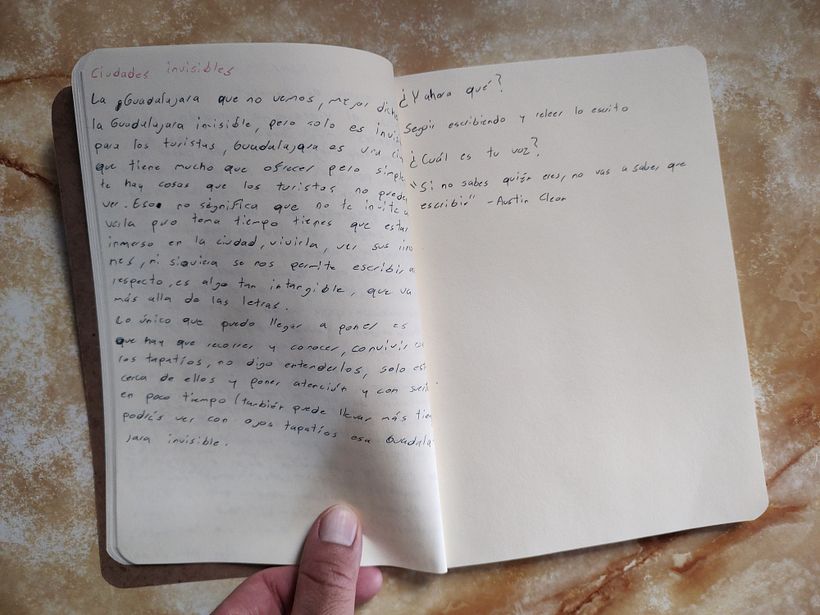 Ciudades invisibles
La Guadalajara que no vemos, mejor dich
la Guadalajara invisible, pero solo es invi
para los turistas, Guadalajara es una ciu
que tiene mucho que ofrecer pero simple
te hay cosas que los turistas no puede
ver. Eso no significa que no te invite a
verla pero toma tiempo tienes que estar
inmerso en la ciudad, vivirla, ver sus
nes, ni siquiera se nos permite escribir a
respecto, es algo tan intangible, que va
más alla de las letras.
Lo único que puedo llegar a poner es
que hay que recorrer y conocer, convivir
los tapatíos, no digo entenderlos, solo est
cerca de ellos y poner atención y con suer
en poco tiempo (también puede llevar más tiem
podrás ver con ojos tapatíos esa Guadala
jara invisible.
¿Y ahora qué?
Seguir escribiendo y releer lo escrito
¿Cuál es tu voz?
"Si no sabes quién eres, no vas a saber que
escribir" - Austin Cleon